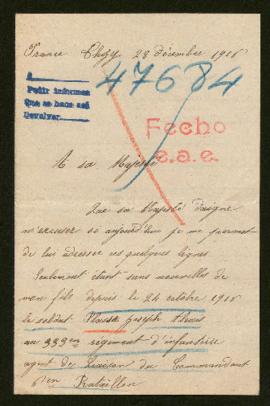 France Choisy 28 décembre 1916
A
Pedir informes
Que se hace así
Devolver
47684
Fecho
e.a.e.
A sa Majesté
Que sa Majesté daigne
m'excuser si aujourd'hui je me permet
de lui adresser ces quelques lignes
seulement étant sans nouvelles de
mon fils depuis le 24 octobre 1916
le soldat Joseph
au 333em régiment d'infanterie
agent de liaison du Commandant
6em Bataillon